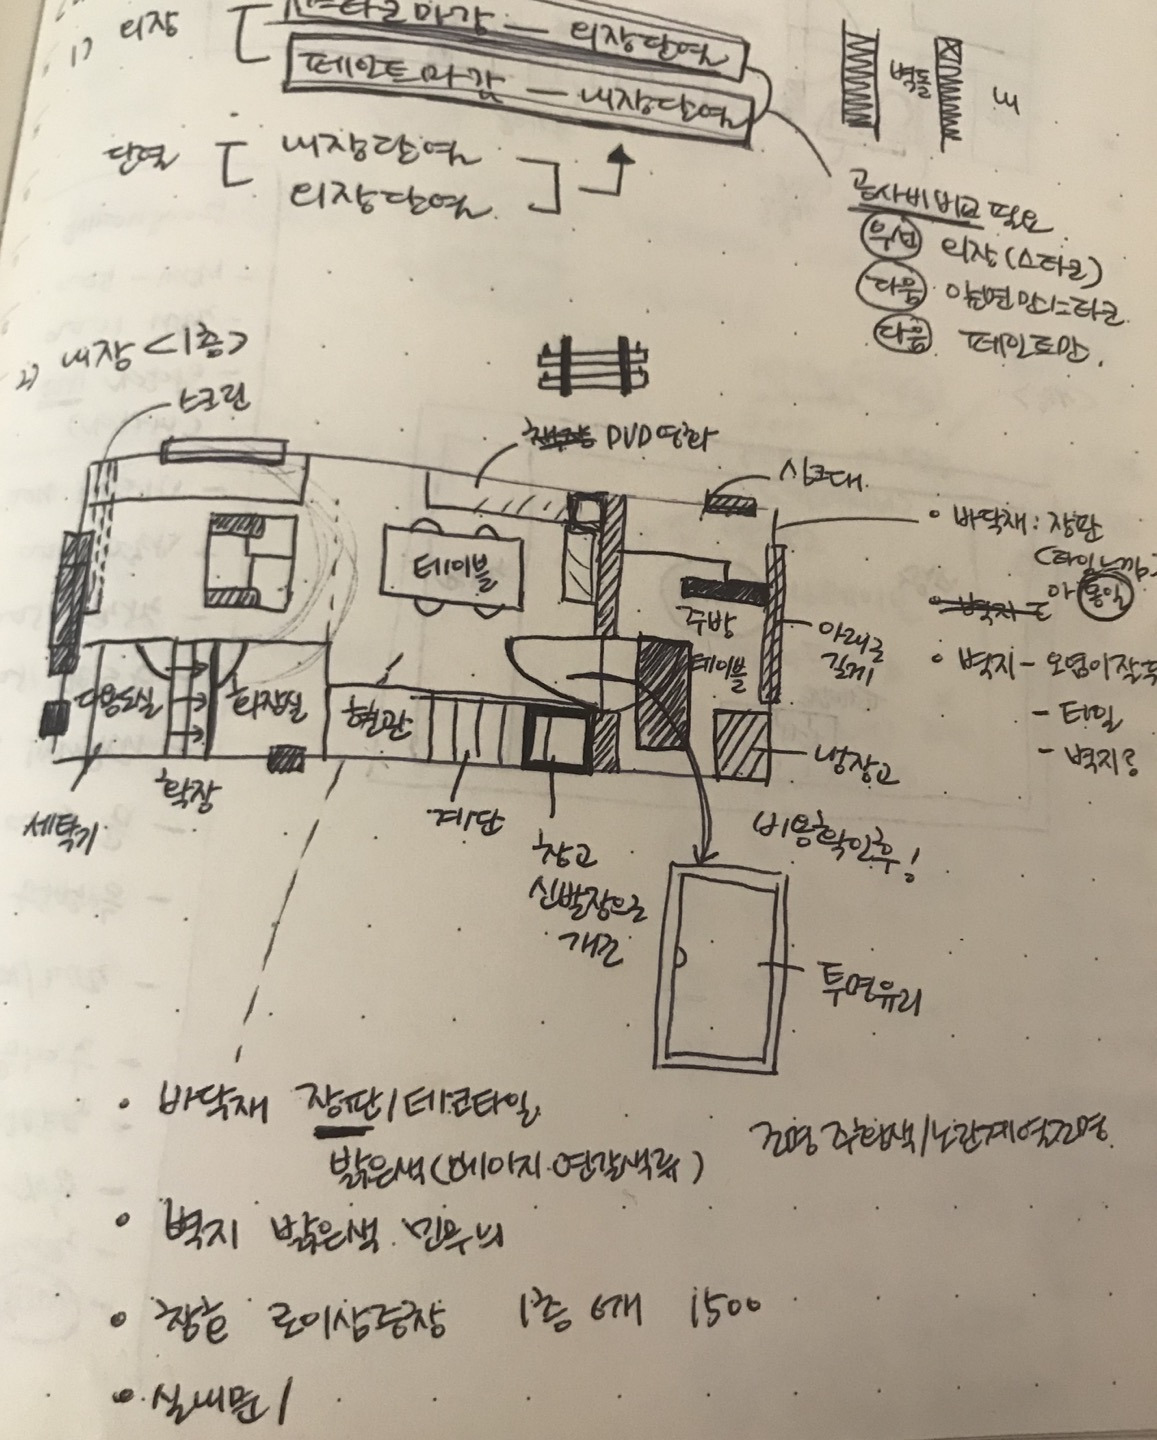 1) 외장
스타코마감 — 외장단열
페인트마감 — 내장단열
벽돌
내
단열
내장단열
외장단열
공사비 비교 필요
우선 외장(스타코)
다음 앞면만 스타코
다음 페인트만.
2) 내장 <1층>
스크린
DVD 영화
싱크대
• 바닥재 : 장판
(타일느낌)
동일
테이블
주방
테이블
아래로
길게
• 벽지 - 오염이 작은
- 타일
- 벽지?
다용도실
화장실
현관
냉장고
세탁기
확장
계단
창고
신발장으로
개조
비용확인후!
투명유리
• 바닥재 장판/데코타일
밝은색(베이지.연갈색류)
조명 주황색/노란계열조명
• 벽지 밝은색. 민무늬
• 창호 로이삼중창 1층 6개 1500
• 실내문 1